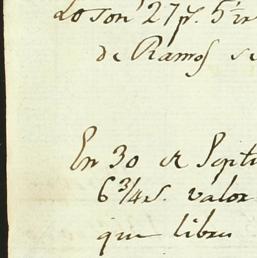 Lo son 27 p. 5
de Ramos se
En 30 de Septi
6 3/4 s. valor
que libru